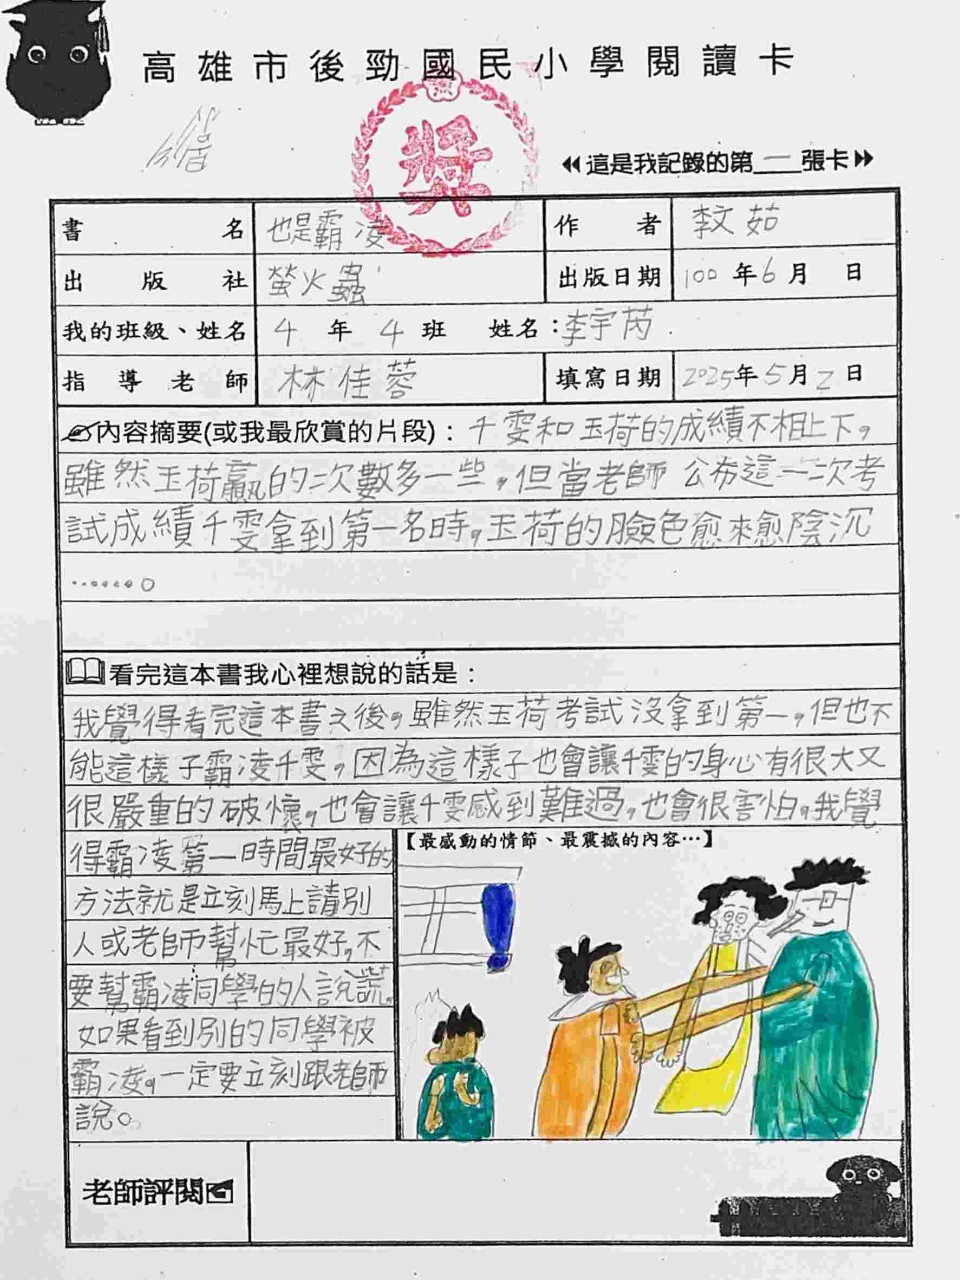 高雄市後勁國民小學閱讀卡
獎
這是我記錄的第一張卡
書名 也是霸凌 作者 李文茹
出版社 螢火蟲 出版日期 100年6月 日
我的班級、姓名 4年4班 姓名:李宇芮
指導老師 林佳蓉 填寫日期 2025年5月2日
內容摘要(或我最欣賞的片段):千雯和玉荷的成績不相上下,
雖然玉荷贏的次數多一些,但當老師公布這一次考
試成績千雯拿到第一名時,玉荷的臉色愈來愈陰沉
……。
看完這本書我心裡想說的話是:
我覺得看完這本書之後,雖然玉荷考試沒拿到第一,但也不
能這樣子霸凌千雯,因為這樣子也會讓千雯的身心有很大又
很嚴重的破壞,也會讓千雯感到難過,也會很害怕。我覺
得霸凌第一時間最好的
方法就是立刻馬上請別
人或老師幫忙最好,不
要幫霸凌同學的人說謊。
如果看到別的同學被
霸凌,一定要立刻跟老師
說。
【最感動的情節、最震撼的內容…】
老師評閱